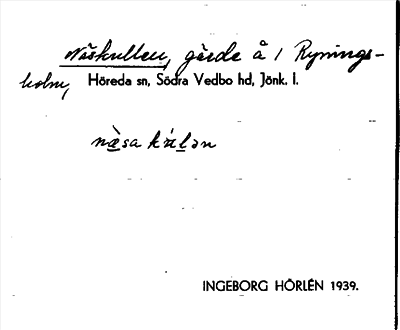 Näskullen, gärde å 1 Rynings-
holm, Höreda sn, Södra Vedbo hd, Jönk. l.
INGEBORG HÖRLÉN 1939.